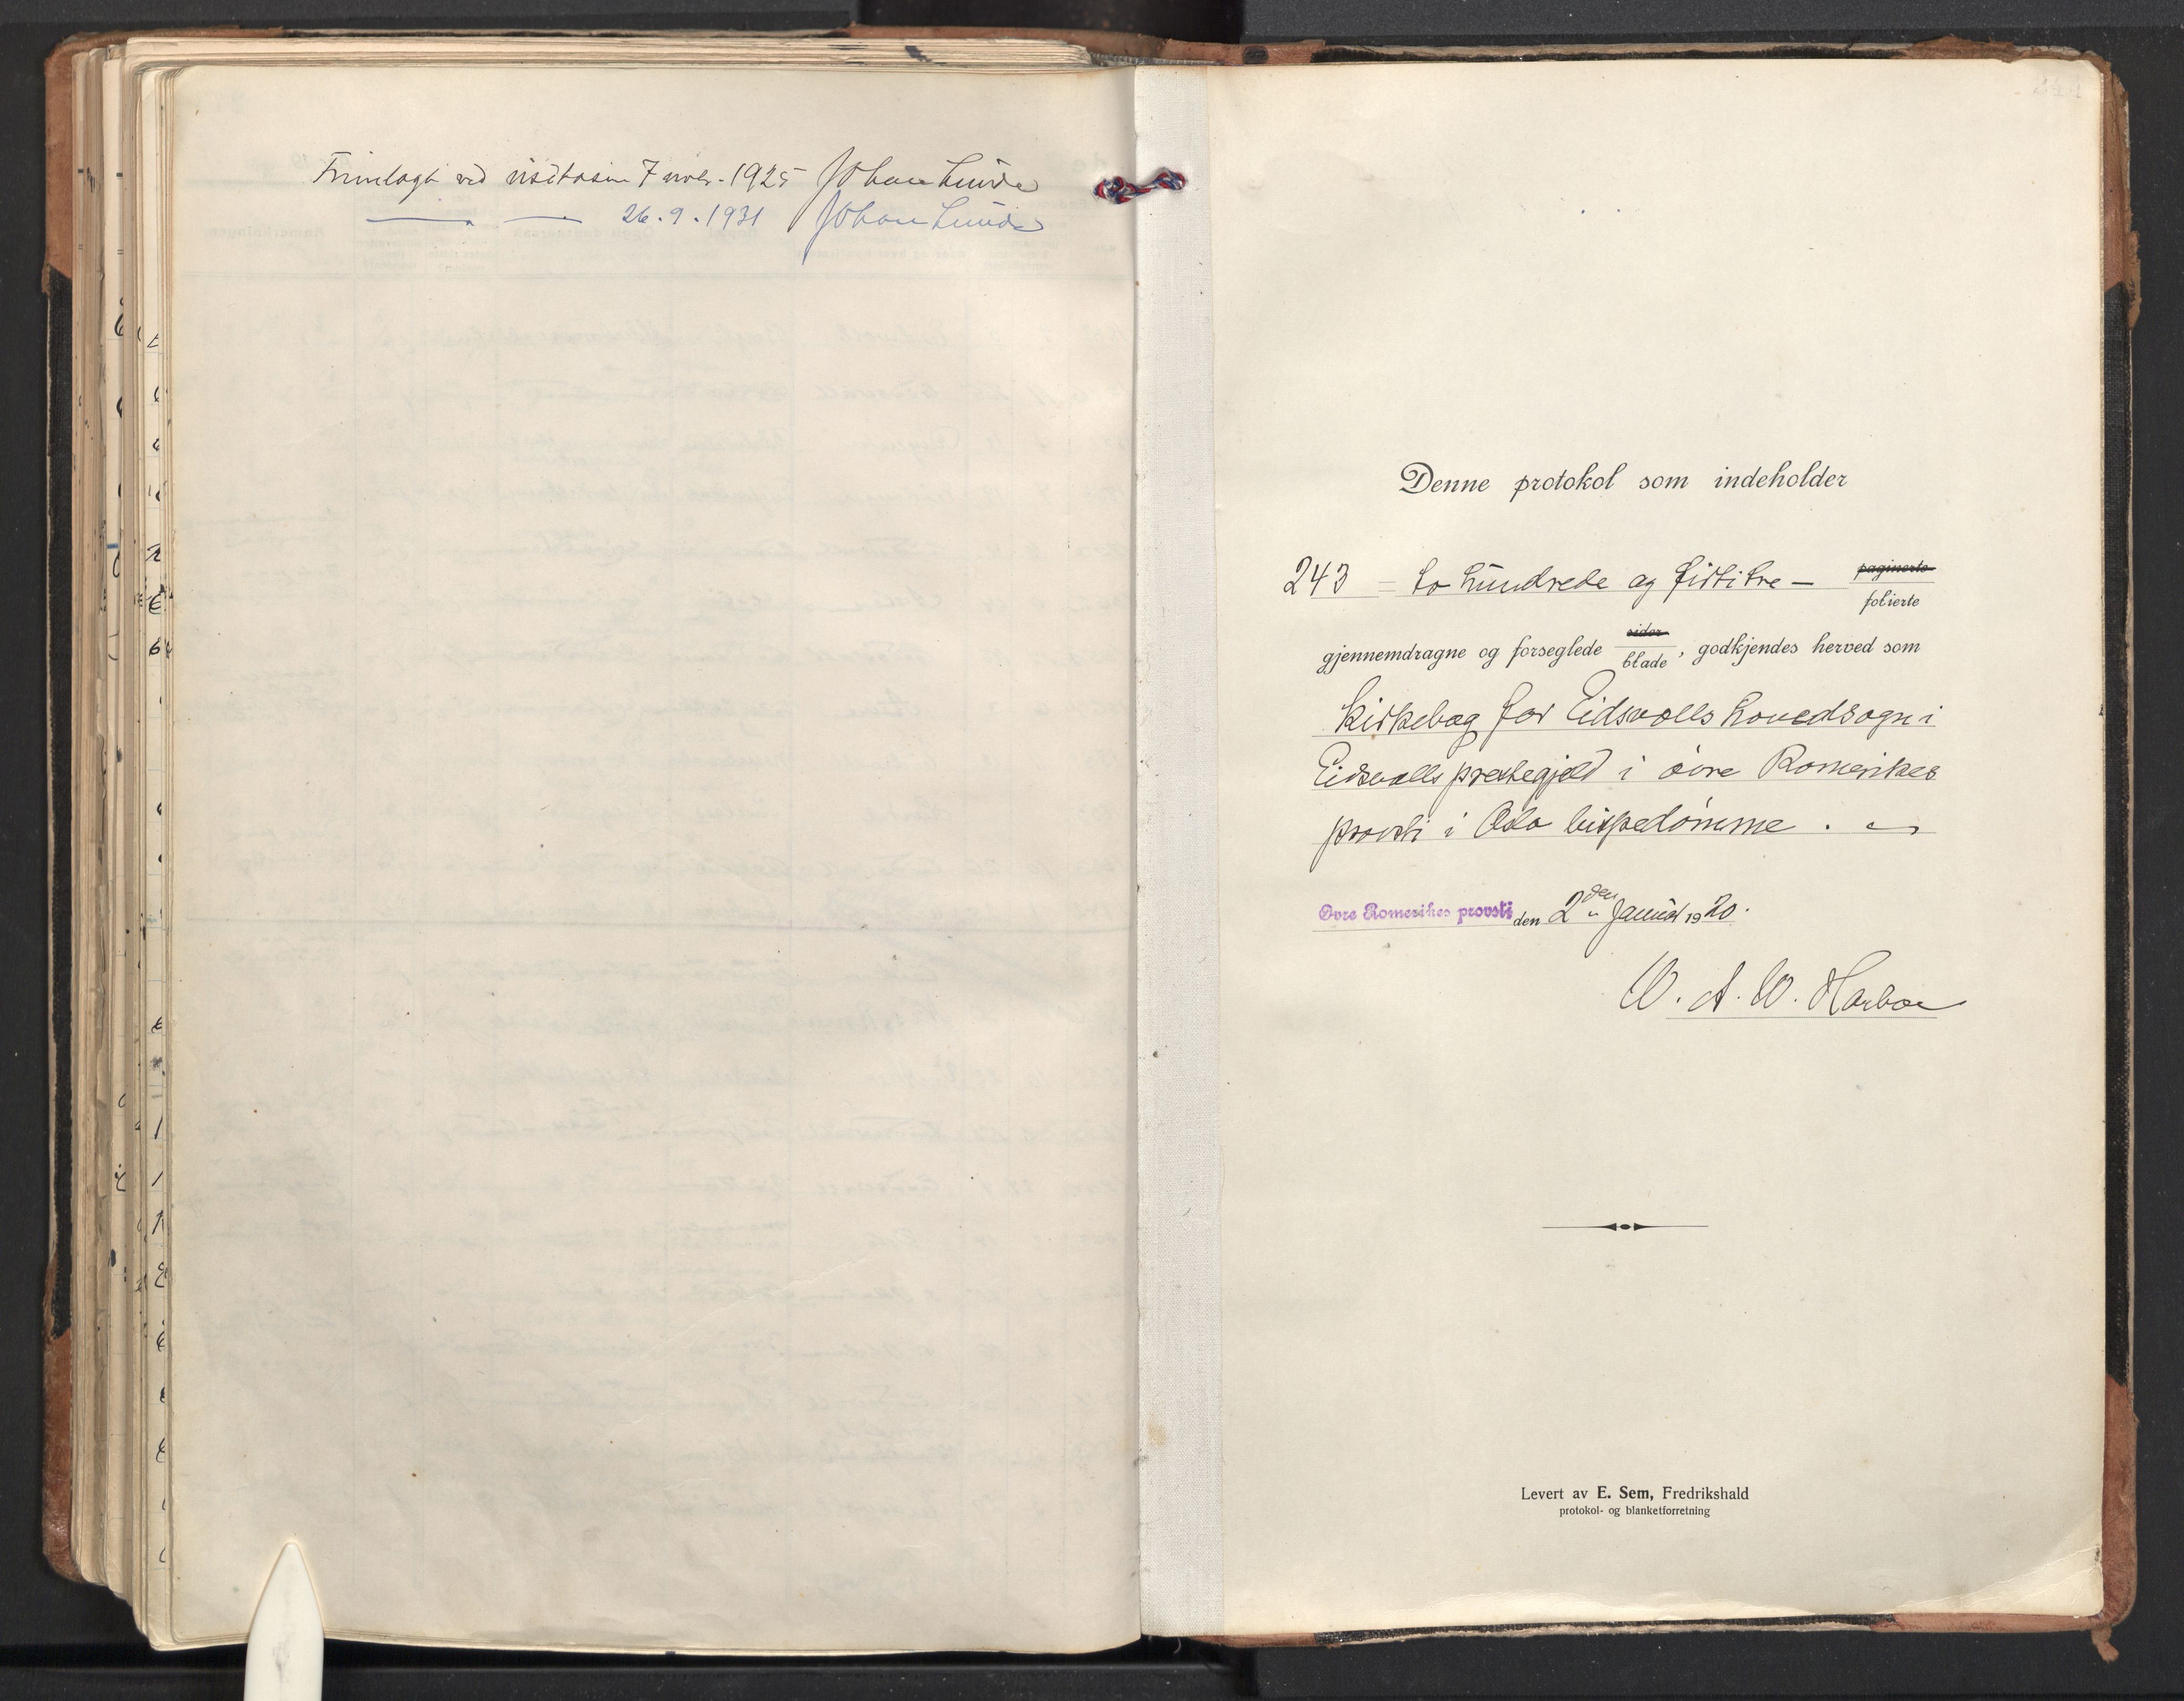 Fremlagt ved visitasen 7 novbr. 1925 Johan Lunde
— — 26.9.1931 Johan Lunde
Denne protokol som indeholder
243 = to hundrede og firti tre —
paginerte
folierte
gjennemdragne og forseglede sider blade, godkjendes herved som
kirkebog for Eidsvolls hovedsogn i
Eidsvolls prestegjeld i øvre Romerikes
provsti i Oslo bispedømme.
Øvre Romerikes provsti den 2den Januar 1920.
W. A. W. Harboe
Levert av E. Sem, Fredrikshald
protokol- og blanketforretning